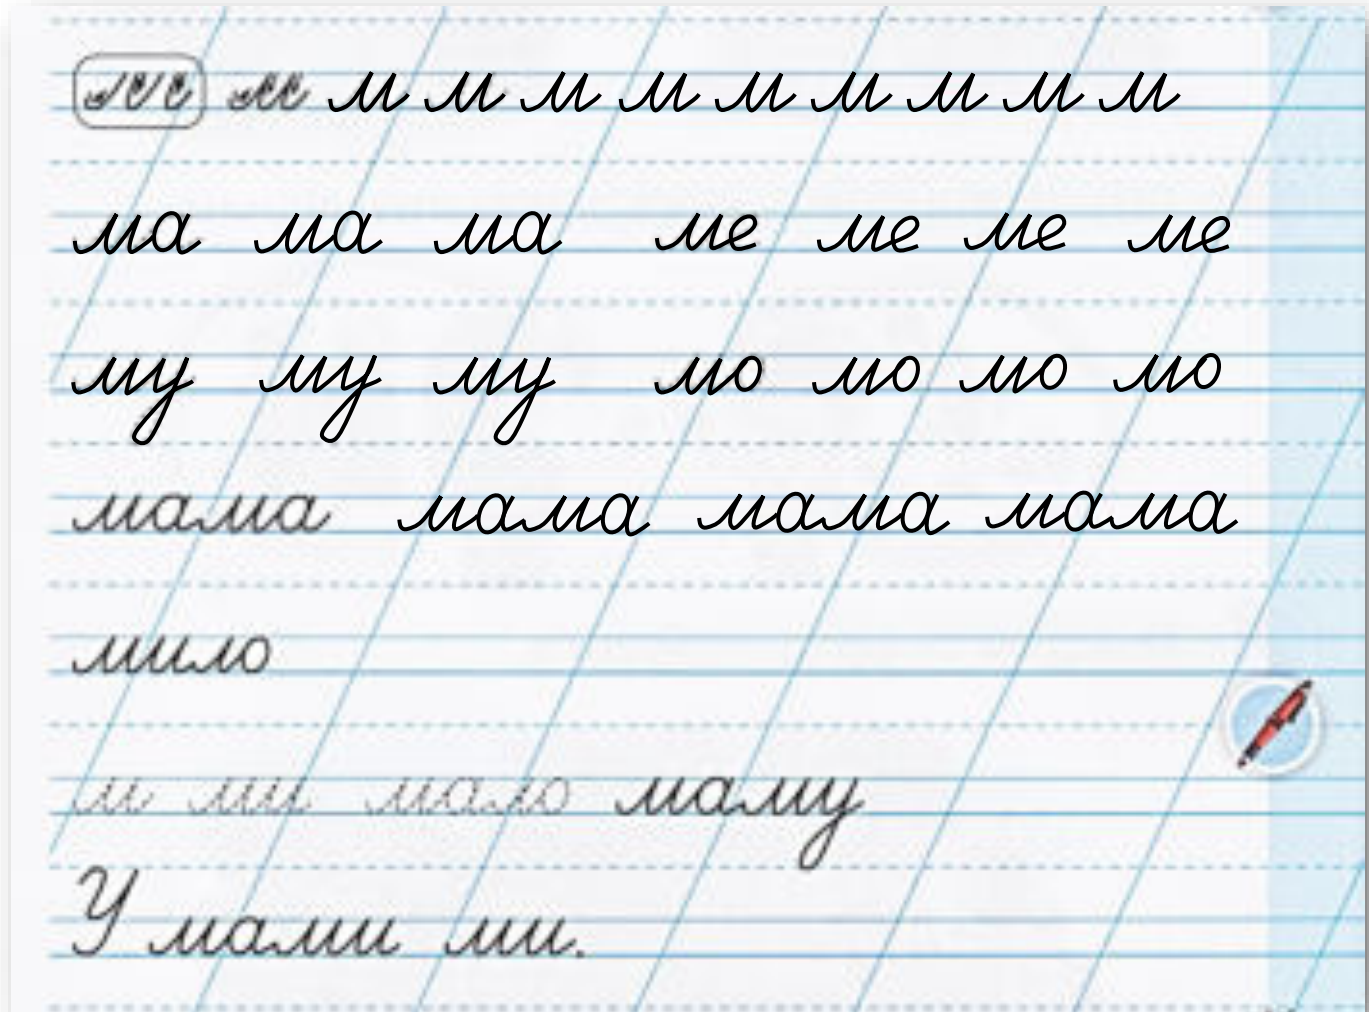 м м м м м м м м м м
ма ма ма ме ме ме ме
му му му мо мо мо мо
мама мама мама мама
мило
м ми мало маму
У мами ми.